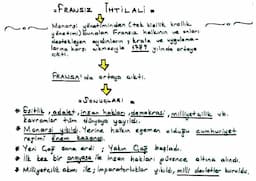 FRANSIZ İHTİLALİ
Monarşi yönetiminden (tek kişilik krallık
yönetimi) bunalan Fransız halkının ve onları
destekleyen aydınların; krala ve uygulama-
larına karşı çıkmasıyla 1789 yılında ortaya
çıktı.
FRANSA'da ortaya çıktı.
SONUÇLARI
Eşitlik, adalet, insan hakları, demokrasi, milliyetçilik vb.
kavramlar tüm dünyaya yayıldı.
Monarşi yıkıldı. Yerine halkın egemen olduğu cumhuriyet
rejimi önem kazandı.
Yeni Çağ sona erdi; Yakın Çağ başladı.
İlk kez bir anayasa ile insan hakları güvence altına alındı.
Milliyetçilik akımı ile; imparatorluklar yıkıldı, milli devletler kuruldu.